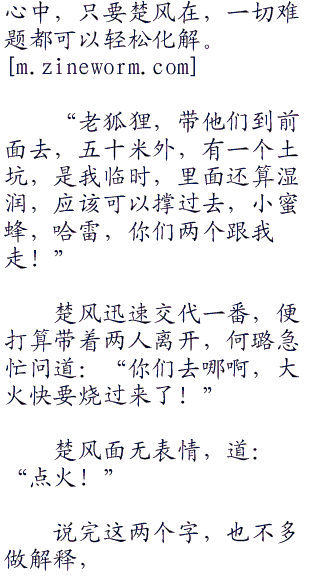 心中，只要楚风在，一切难
题都可以轻松化解。
[m.zineworm.com]
“老狐狸，带他们到前
面去，五十米外，有一个土
坑，是我临时，里面还算湿
润，应该可以撑过去，小蜜
蜂，哈雷，你们两个跟我
走！”
楚风迅速交代一番，便
打算带着两人离开，何璐急
忙问道：“你们去哪啊，大
火快要烧过来了！”
楚风面无表情，道：
“点火！”
说完这两个字，也不多
做解释，